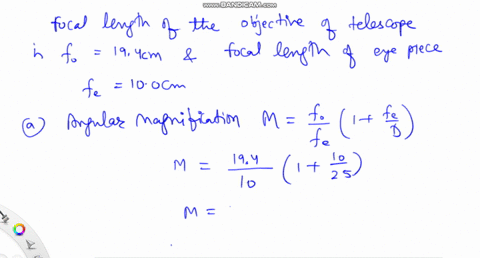 www.BANDICAM.com
focal length of the objective of telescope
is fo = 19.4cm & focal length of eye piece
fe = 10.0cm
(a) Angular magnifiation M = fo/fe (1 + fe/D)
M = 19.4/10 (1 + 10/25)
M =